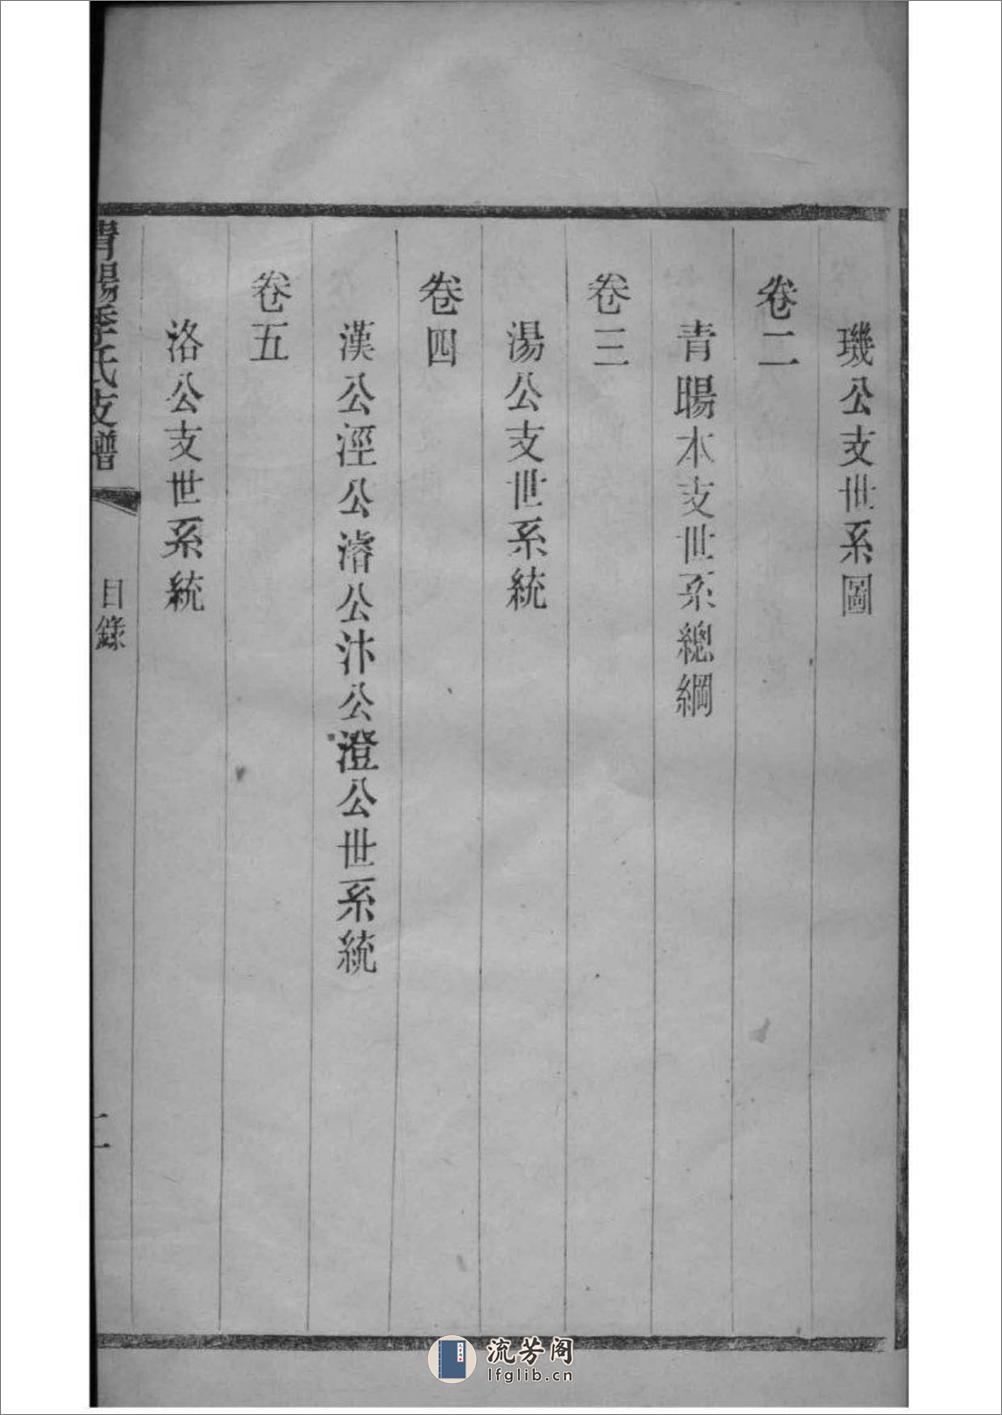 璣公支世系圖
卷二
青暘本支世系總綱
卷三
湯公支世系統
卷四
漢公涇公濬公汴公澄公世系統
卷五
洛公支世系統
青暘季氏支譜
目錄
二
流芳阁
lfglib.cn